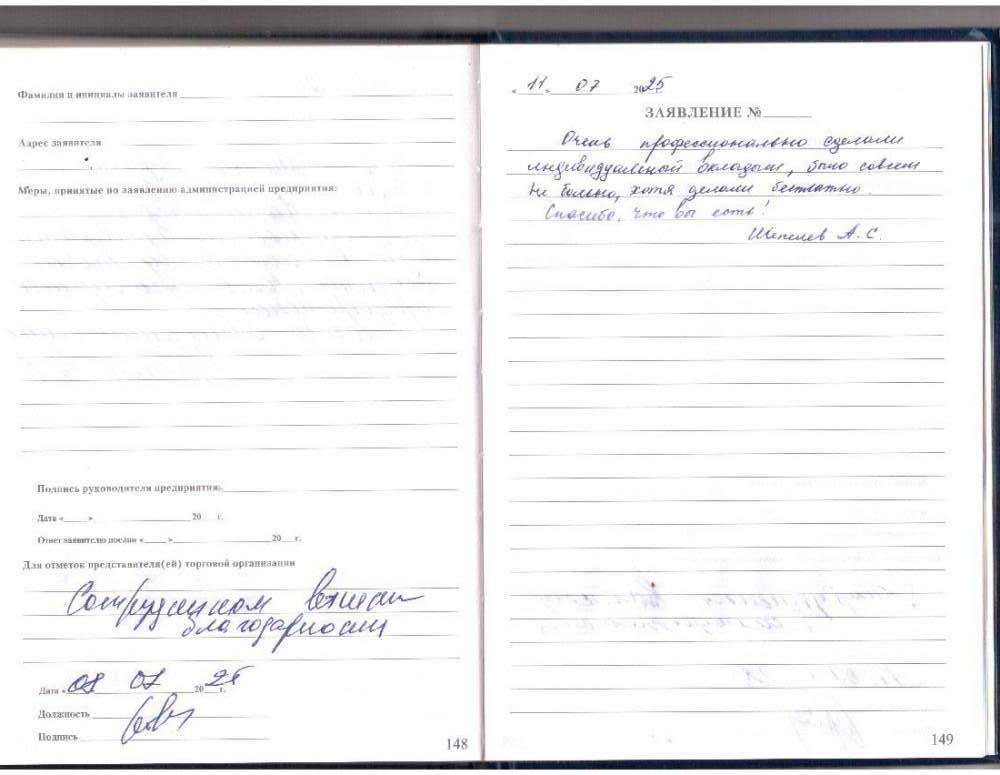 Фамилия и инициалы заявителя
Адрес заявителя
Меры, принятые по заявлению администрацией предприятия:
Подпись руководителя предприятия:
Дата « » 20 г.
Ответ заявителю послан « » 20 г.
Для отметок представителя(ей) торговой организации
Сотрудникам
благодарности
Дата « 08 07 20 25 г.
Должность
Подпись
148
« 11 » 07 2025
ЗАЯВЛЕНИЕ №
Очень профессионально сделали
индивидуальной вкладыш, было совсем
не больно, хотя делали бесплатно.
Спасибо, что вы есть!
Шепелев А. С.
149